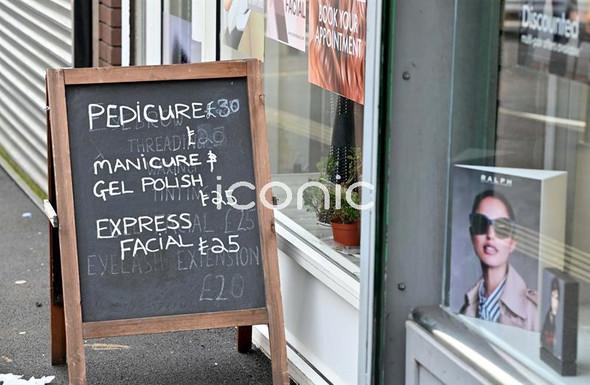 PEDICURE £30
EYEBROW
THREADING £20
MANICURE &
GEL POLISH £25
EXPRESS
FACIAL £25
FACIAL £25
EYELASH EXTENSION
£20
FACIAL
BOOK YOUR
APPOINTMENT
Discounted
RALPH
iconic